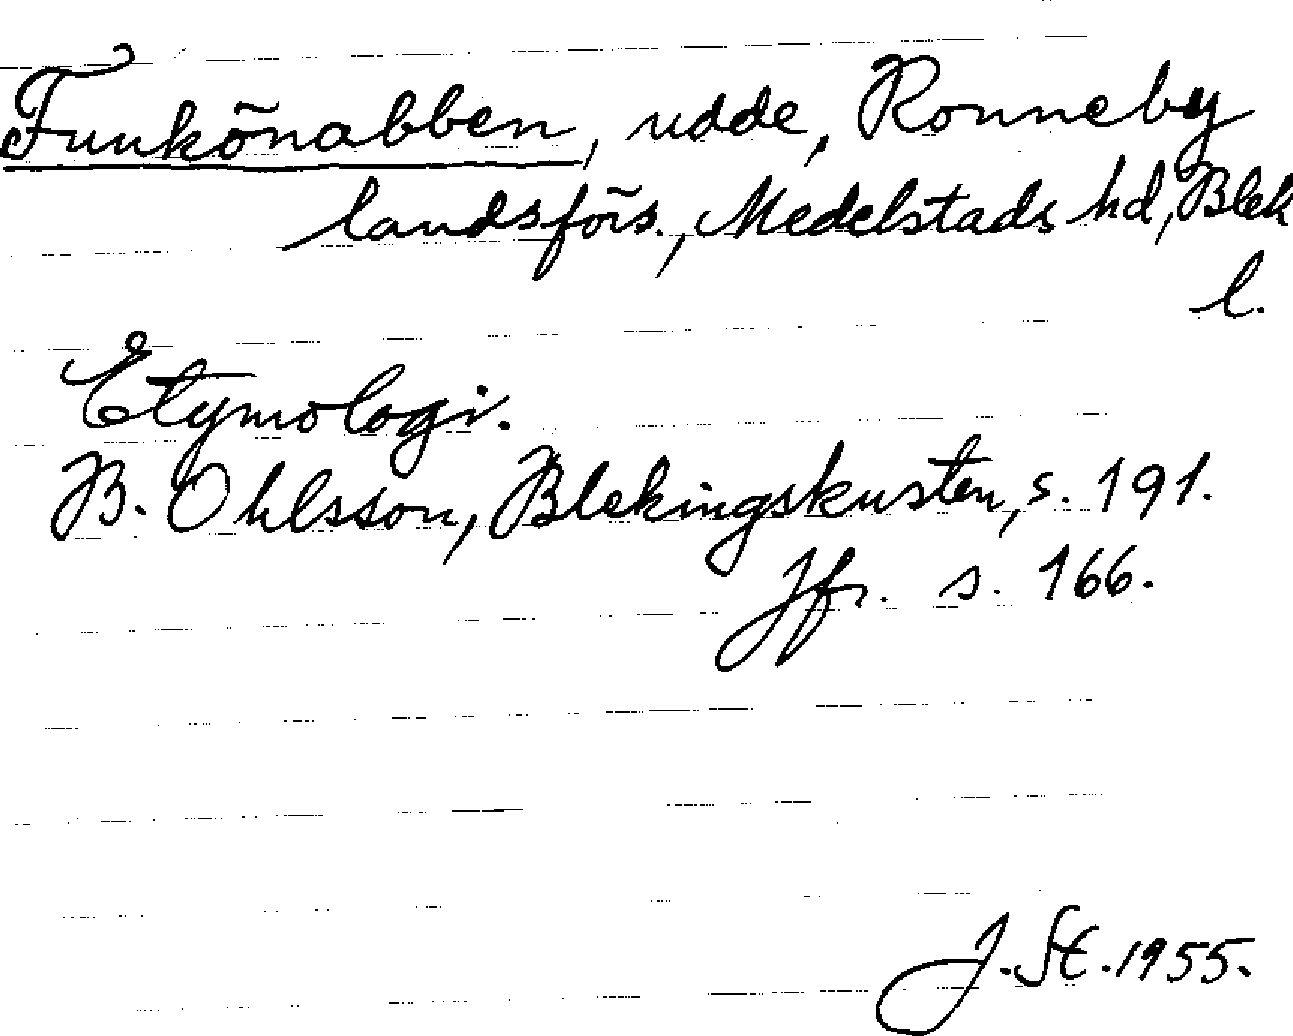 Funkönabben, udde, Ronneby
landsförs., Medelstads hd, Blek
l.
Etymologi.
B. Ohlsson, Blekingskusten, s. 191.
Jfr. s. 166.
J. St. 1955.